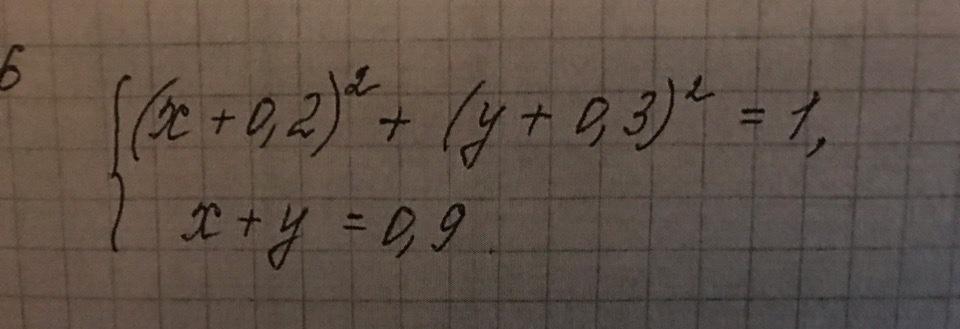 б
(x + 0,2)² + (y + 0,3)² = 1,
x + y = 0,9